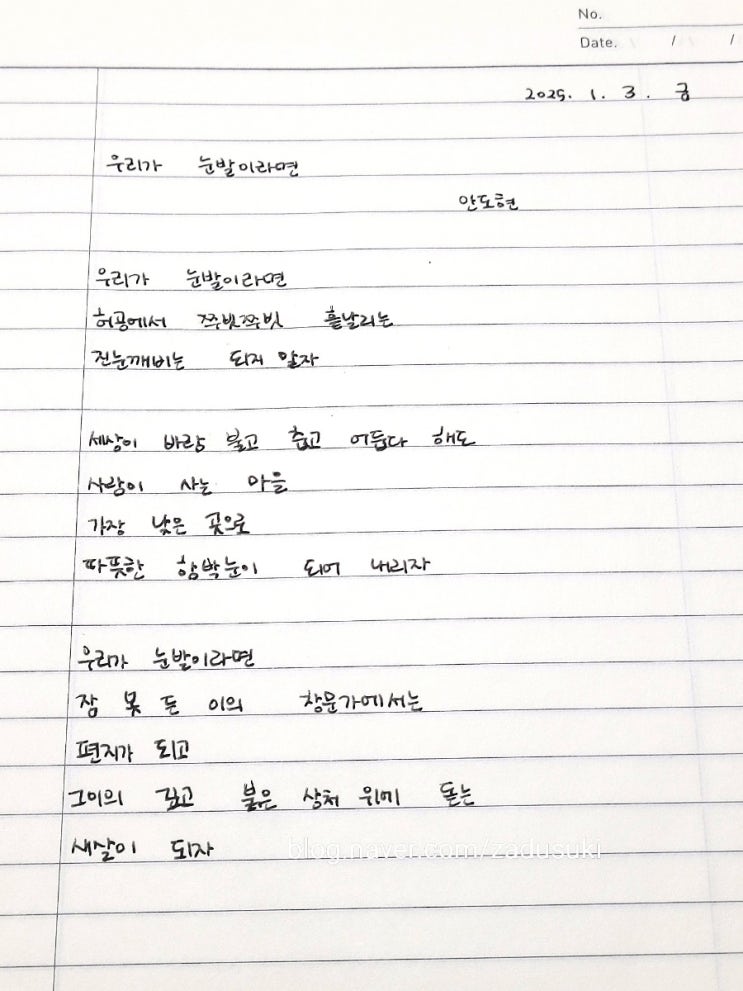 No.
Date. / /
2025. 1. 3. 금
우리가 눈발이라면
안도현
우리가 눈발이라면
허공에서 쭈빗쭈빗 흩날리는
진눈깨비는 되지 말자
세상이 바람 불고 춥고 어둡다 해도
사람이 사는 마을
가장 낮은 곳으로
따뜻한 함박눈이 되어 내리자
우리가 눈발이라면
잠 못 든 이의 창문가에서는
편지가 되고
그이의 깊고 붉은 상처 위에 돋는
새살이 되자
blog.naver.com/zadusuki